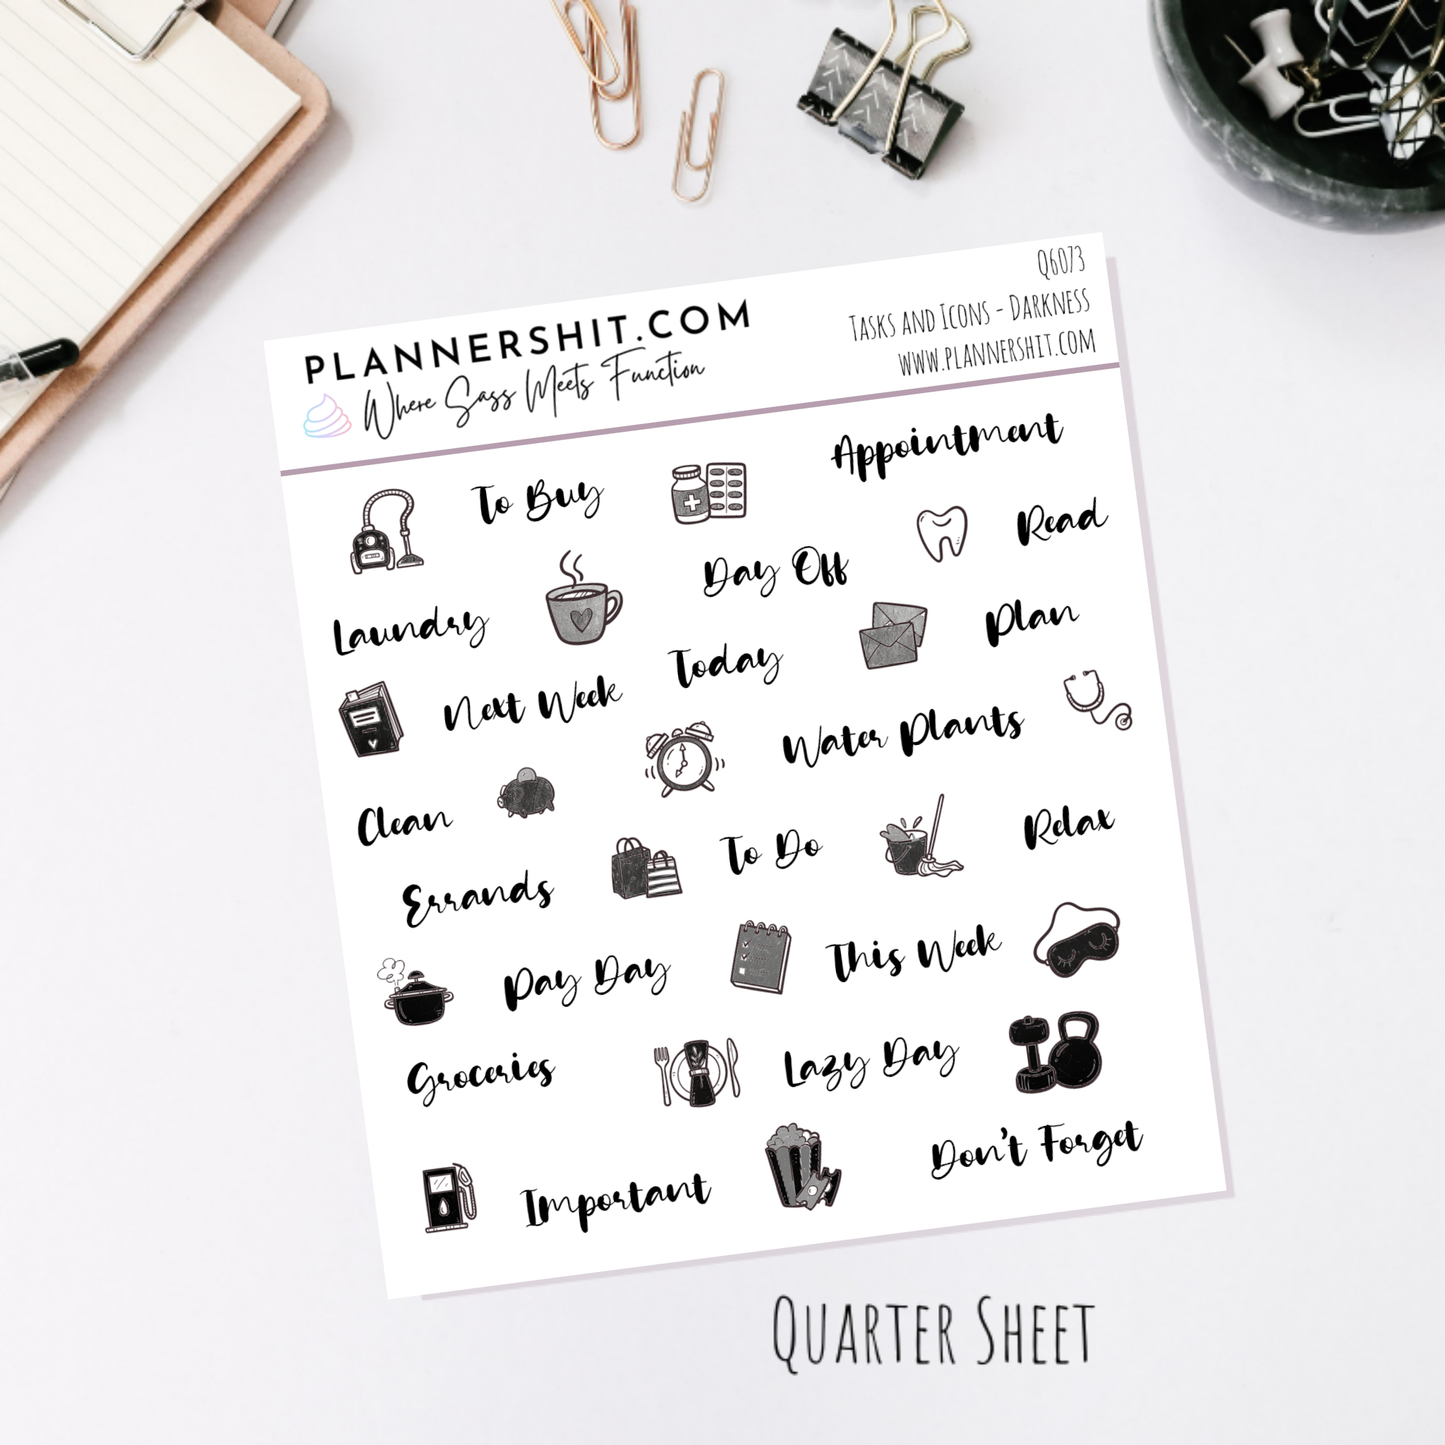 PLANNERSHIT.COM
Where Sass Meets Function
Q6073
Tasks and Icons - Darkness
www.plannershit.com
To Buy
Appointment
Read
Day Off
Laundry
Plan
Today
Next Week
Water Plants
Clean
To Do
Relax
Errands
This Week
Pay Day
Groceries
Lazy Day
Don't Forget
Important
Quarter Sheet